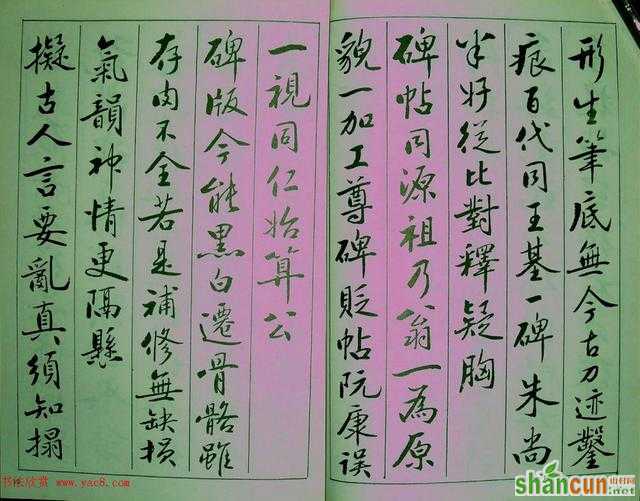 形生筆底無今古刀迹鑿
痕百代同王基一碑朱尚
半好從比對釋疑胸
碑帖同源祖乃翁一為原
貌一加工尊碑貶帖阮康誤
一視同仁始算公
碑版今能黑白遷骨骼雖
存肉不全若是補修無缺損
氣韻神情更隔懸
擬古人言要亂真須知搨
书法欣赏 www.yac8.com
shancun 山村网
.net